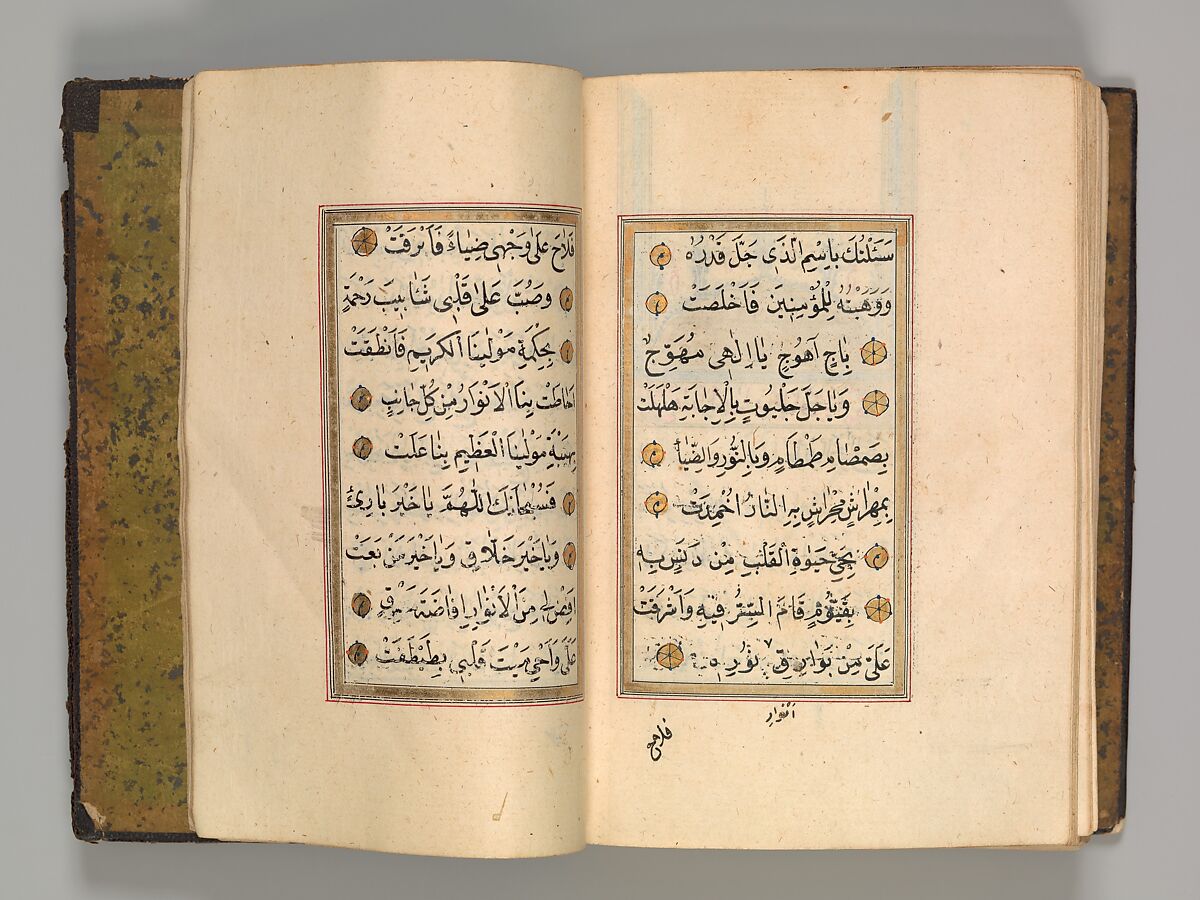 سَئَلْتُكَ بِاسْمِ الَّذِي جَلَّ قَدْرُهُ
لِلْمُؤْمِنِينَ فَاَخْلَصَتْ
بِاجٍ آهُوجٍ يَا اِلٰهِي مُهَوِّجٌ
وَيَا جَلْ جَلْبُوتٍ بِالْاِجَابَةِ هَلْهَلَتْ
بِصَمْصَامِ طَمْطَامٍ وَيَا لِنُّورِ وَالضِّيَا
بِمِهْرَاشٍ مِحْرَاشٍ بِهِ النَّارُ اُخْمِدَتْ
بِحَيِّ حَيٰوةِ الْقَلْبِ مِنْ دَنَسٍ بِهِ
بِقَيُّومٍ قَامَ السِّرُّ فِيهِ وَاَشْرَقَتْ
عَلَيَّ مِنْ بَوَارِقِ نُورِهِ
انوار
فلاح
فَلَاحَ عَلَى وَجْهِي ضِيَاءٌ فَاَبْرَقَتْ
وَصُبَّ عَلَى قَلْبِي شَاٰبِيبَ رَحْمَةٍ
بِحِكْمَةِ مَوْلٰينَا الْكَرِيمِ فَاَنْطَقَتْ
اَحَاطَتْ بِنَا الْاَنْوَارُ مِنْ كُلِّ جَانِبٍ
بِهَيْبَةِ مَوْلٰينَا الْعَظِيمِ بِنَا عَلَتْ
فَسُبْحَانَكَ اللّٰهُمَّ يَا خَيْرَ بَارِئٍ
وَيَا خَيْرَ خَلَّاقٍ وَيَا خَيْرَ مَنْ بَعَثْ
اَفِضْ لِي مِنَ الْاَنْوَارِ اِفَاضَةَ مُشْرِقٍ
عَلَيَّ وَاَحْيِ مَيْتَ قَلْبِي بِطَيْطَغَتْ